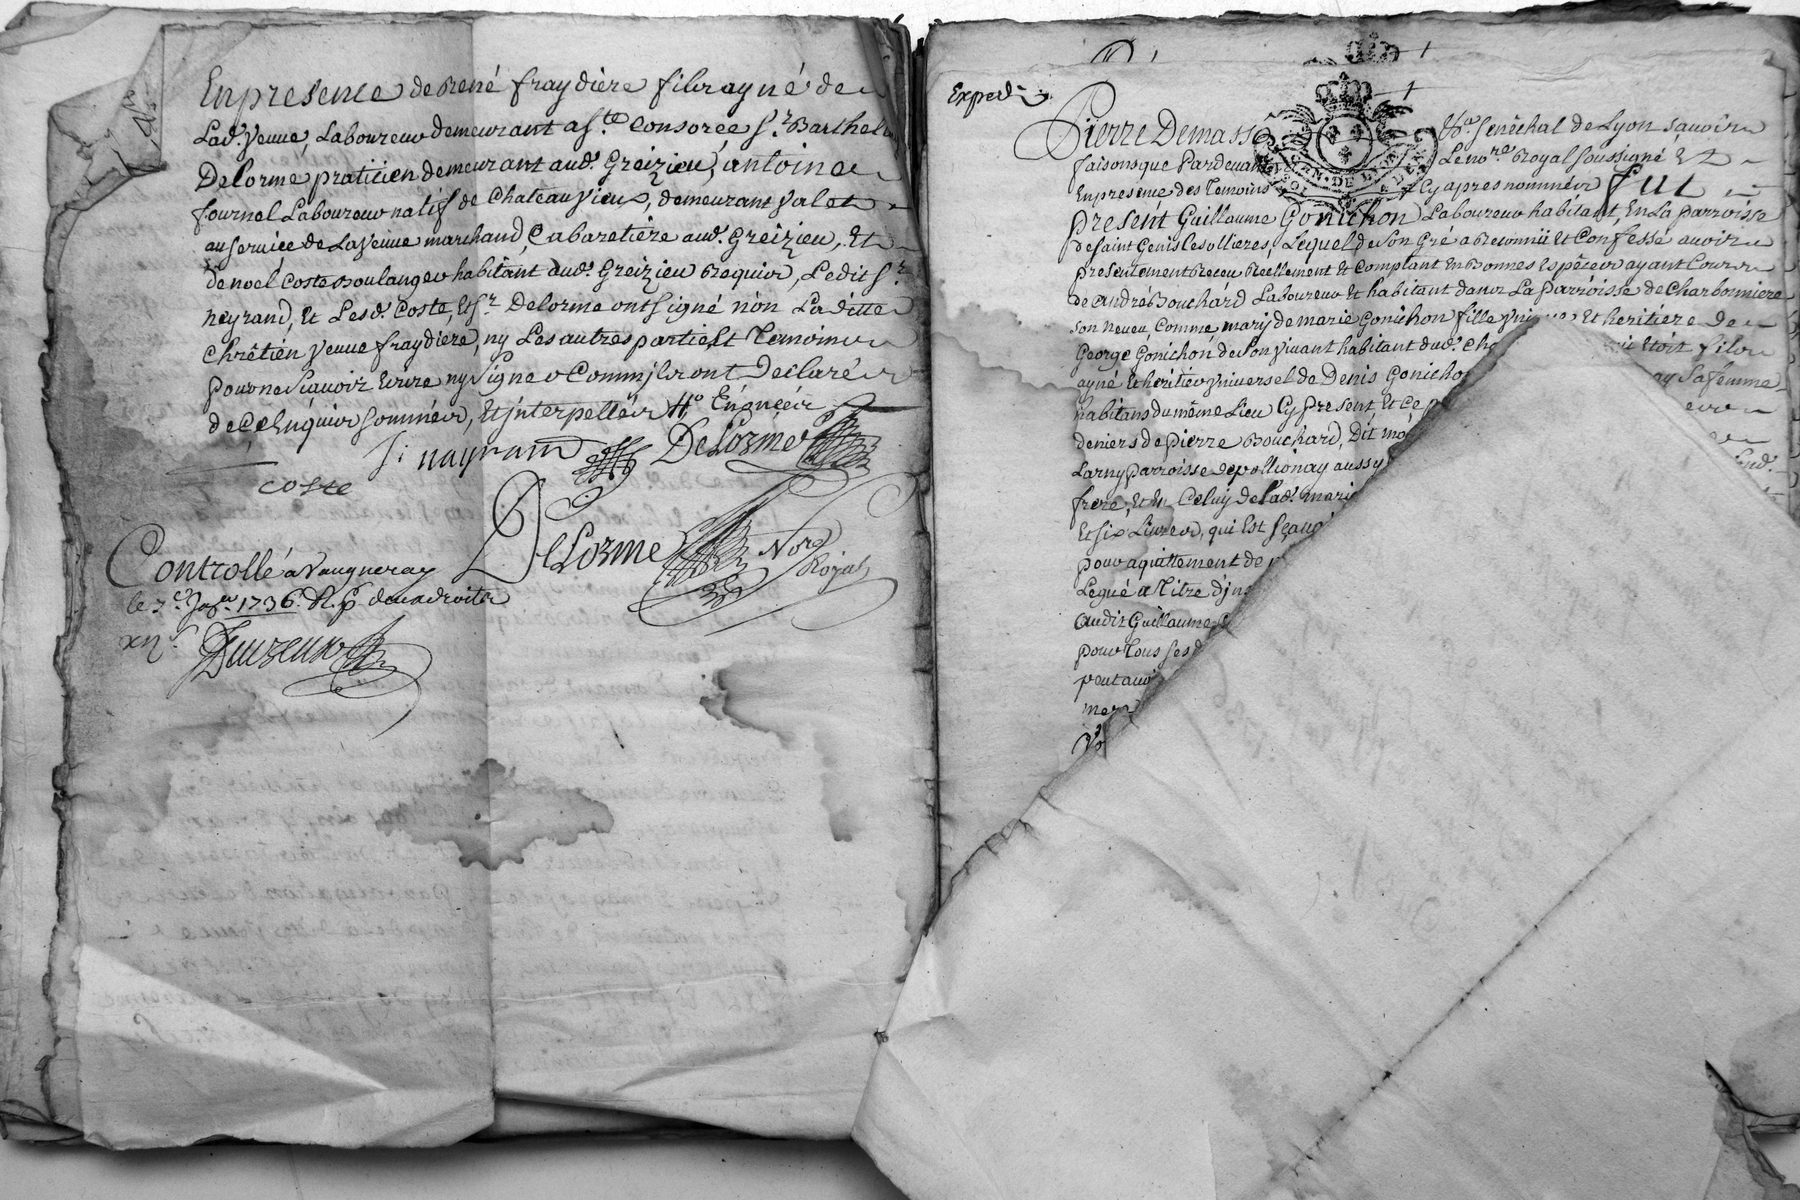 En presence de René fraydière fils ayné de
Lad. veuve, Laboureur demeurant a ste Consorce Sr. Barthel
Delorme praticien demeurant aud. Greizieu, antoine
fournel Laboureur natif de Chateauvieux, demeurant valet
au service de La veuve marchand, Cabaretière aud. Greizieu, Et
de noel Coste Boulanger habitant aud. Greizieu Requis, Ledit Sr.
neyrand, Et Lesd. Coste, Et Sr. Delorme ont signé non La ditte
Chrétien veuve fraydiere, ny Les autres parties Et Temoins
pour ne Sçavoir Ecrire ny Signer Comm'ils ont Declaré
de Ce Enquis sommés, Et interpellés
nayrand Delorme
coste
Delorme Nore
Royal
Controllé a Vaugneray
le 7e. 1736. R. six sols
Exped.
Pierre Demasso Sénéchal de Lyon sçavoir
faisons que Pardevant Le nore. Royal soussigné Et
En presence des Temoins Cy apres nommés fut
present Guillaume Gonichon Laboureur habitant, En La parroisse
de Saint Genis Les ollieres, Lequel de Son Gré a Reconnü Et Confessé avoir
presentement Receu Réellement Et Comptant En Bonnes Espèces ayant Cours
de andré Bouchard Laboureur Et habitant dans La Parroisse de Charbonniere
son neveu Comme mary de marie Gonichon fille Et heritiere de
George Gonichon de Son vivant habitant dud. Cha Etoit fils
ayné Et heritier universel de Denis Gonicho Sa femme
habitans du même Lieu Cy present Et
deniers de pierre Bouchard, Dit
Larny parroisse de pollionay aussy
frere, Et En Celuy de Lad. mari
Et six Livres, qui Est
pour aquittement de
Legué a Titre d'jn
audit Guillaume
pour Tous ses
peut avoi